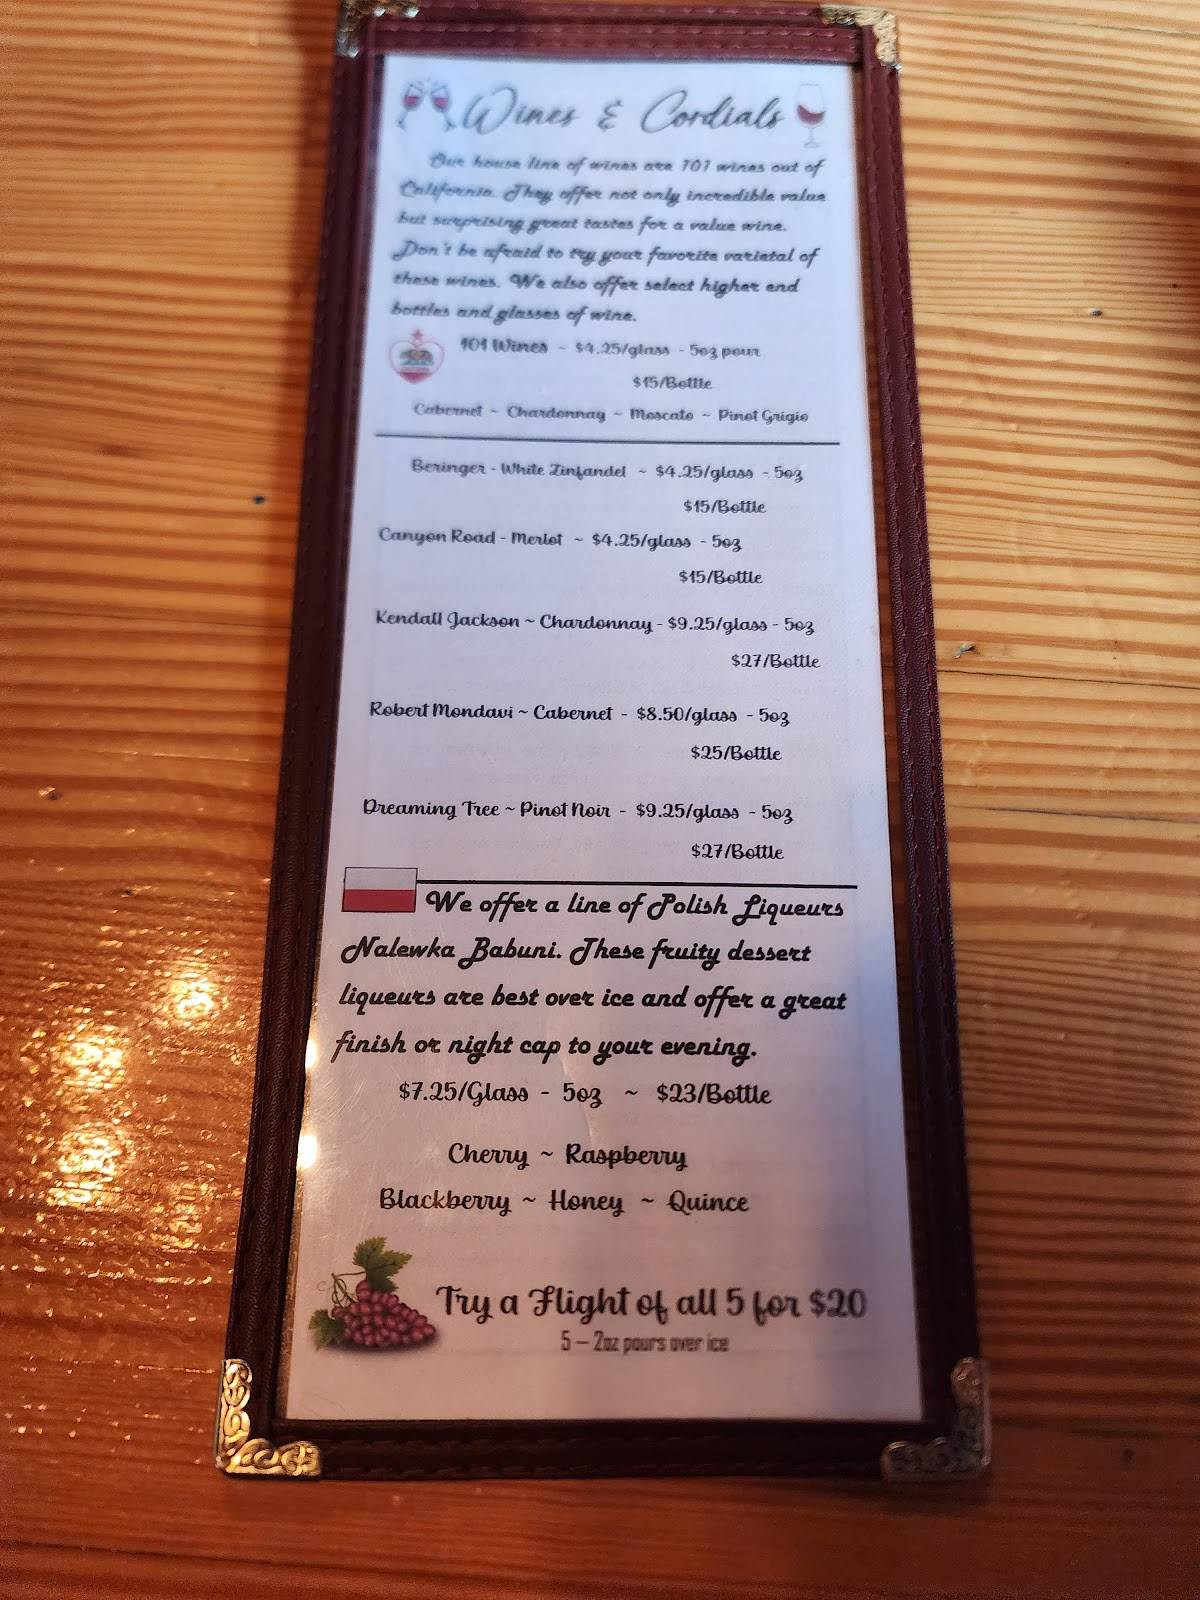 Wines & Cordials
Our house line of wines are 101 wines out of
California. They offer not only incredible value
but surprising great tastes for a value wine.
Don't be afraid to try your favorite varietal of
these wines. We also offer select higher end
bottles and glasses of wine.
101 Wines ~ $4.25/glass - 5oz pour
$15/Bottle
Cabernet ~ Chardonnay ~ Moscato ~ Pinot Grigio
Beringer - White Zinfandel ~ $4.25/glass - 5oz
$15/Bottle
Canyon Road - Merlot ~ $4.25/glass - 5oz
$15/Bottle
Kendall Jackson ~ Chardonnay - $9.25/glass - 5oz
$27/Bottle
Robert Mondavi ~ Cabernet - $8.50/glass - 5oz
$25/Bottle
Dreaming Tree ~ Pinot Noir - $9.25/glass - 5oz
$27/Bottle
We offer a line of Polish Liqueurs
Nalewka Babuni. These fruity dessert
liqueurs are best over ice and offer a great
finish or night cap to your evening.
$7.25/Glass - 5oz ~ $23/Bottle
Cherry ~ Raspberry
Blackberry ~ Honey ~ Quince
Try a Flight of all 5 for $20
5 – 2oz pours over ice